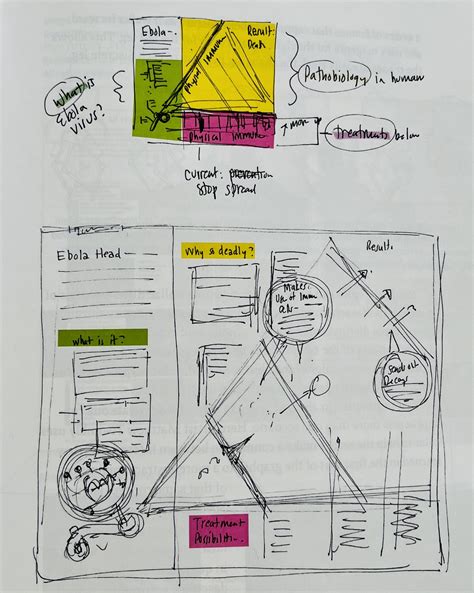 Ebola—.
Result:
Death
Physical Immune
What is
Ebola
virus?
Pathobiology in human
Physical Immune
more up
treatments below
current: prevention
stop spread
Ebola Head —
Why so deadly?
Result:
Makes
Use of Immune
Cells—
what is it?
Send out
Decoys
Treatment
Possibiliti—